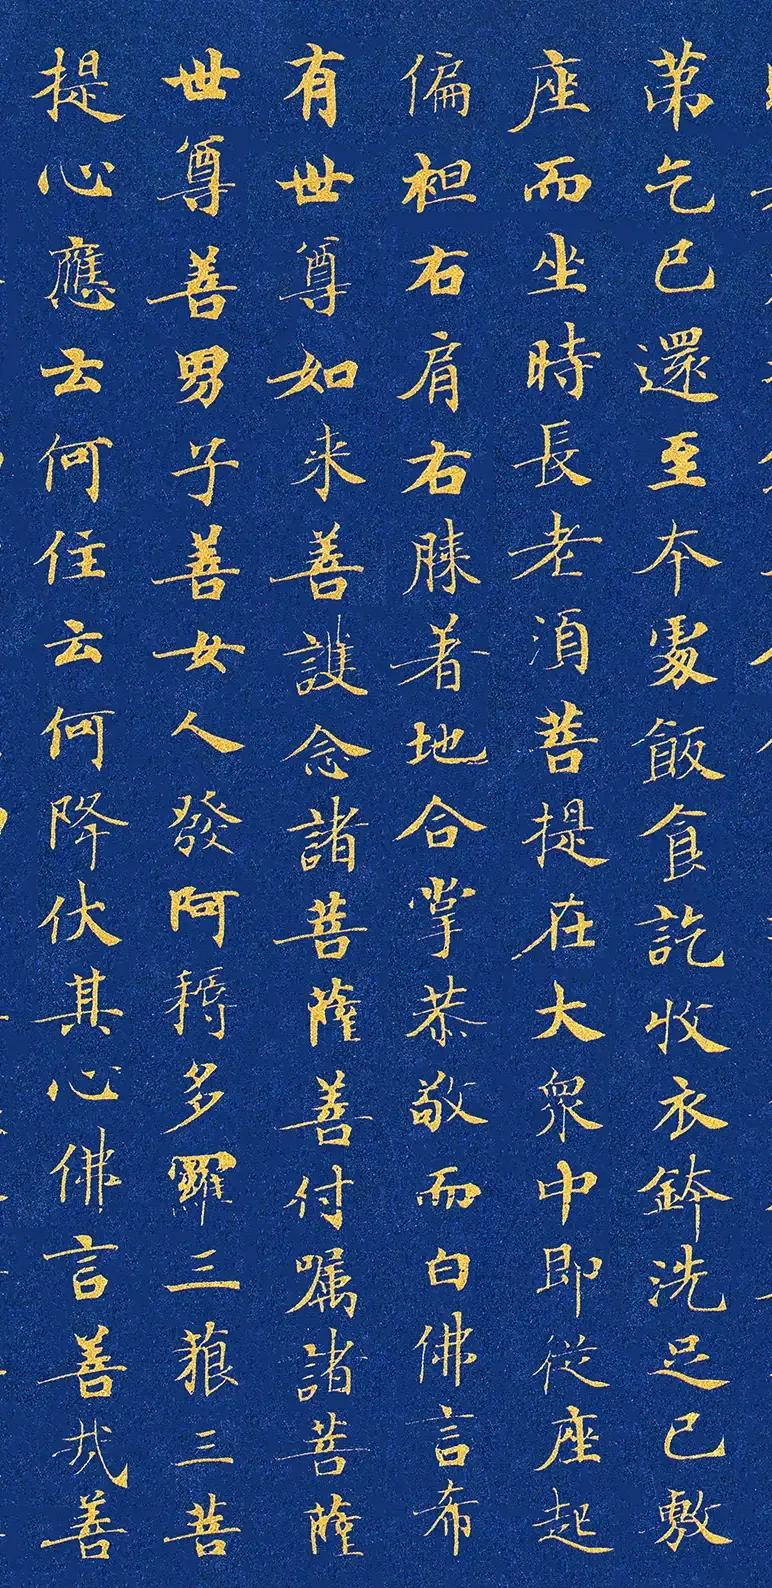 第乞已還至本處飯食訖收衣鉢洗足已敷
座而坐時長老湏菩提在大衆中即從座起
偏袒右肩右膝著地合掌恭敬而白佛言希
有世尊如来善護念諸菩薩善付嘱諸菩薩
世尊善男子善女人發阿耨多羅三藐三菩
提心應云何住云何降伏其心佛言善哉善